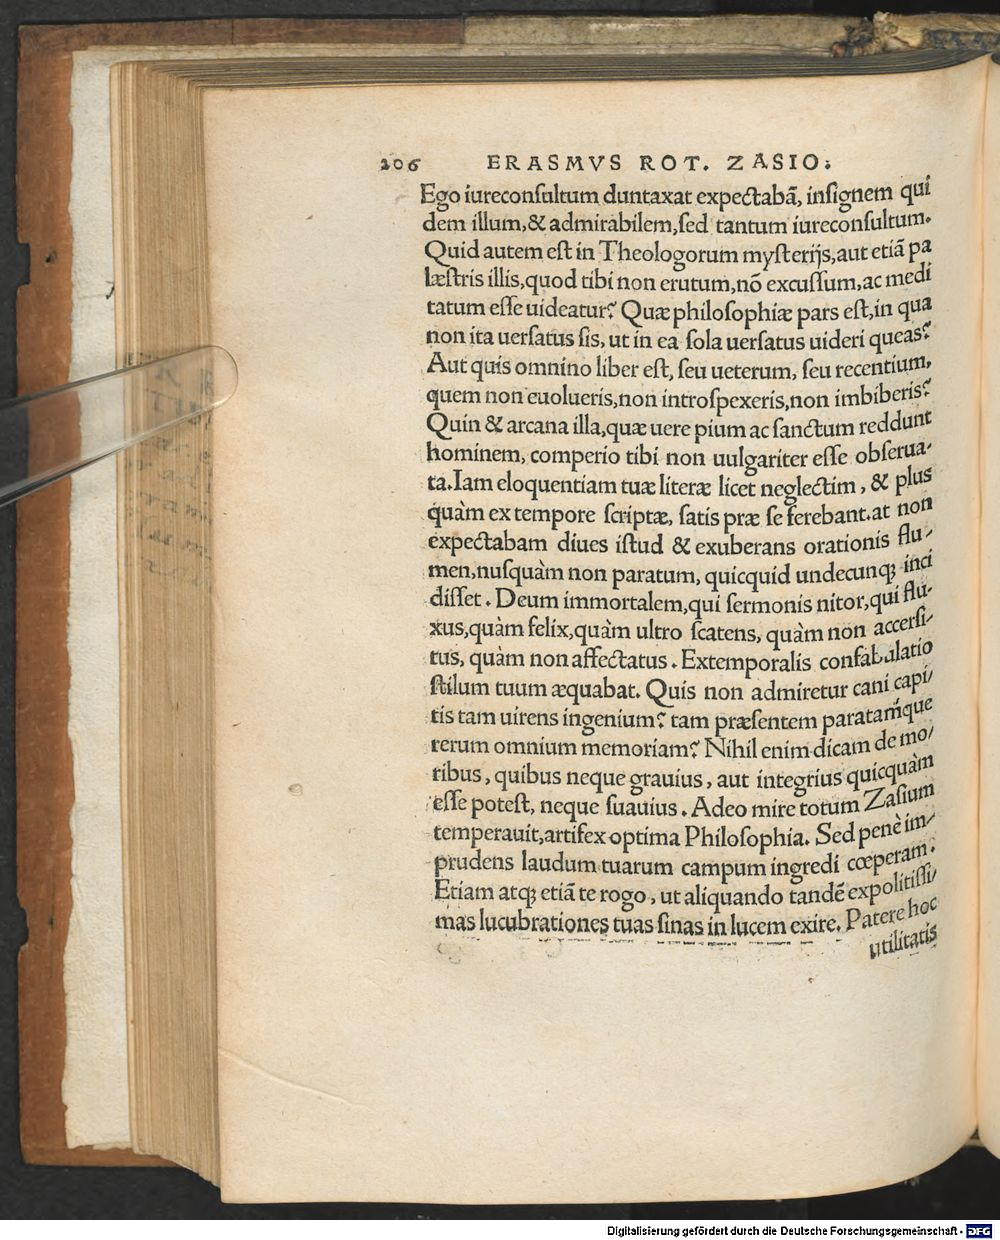 206 ERASMVS ROT. ZASIO:
Ego iureconſultum duntaxat expectabã, inſignem qui
dem illum,& admirabilem,ſed tantum iureconſultum.
Quid autem eſt in Theologorum myſterijs,aut etiã pa
læſtris illis,quod tibi non erutum,nõ excuſſum,ac medi
tatum eſſe uideatur? Quæ philoſophiæ pars eſt,in qua
non ita uerſatus ſis, ut in ea ſola uerſatus uideri queas?
Aut quis omnino liber eſt, ſeu ueterum, ſeu recentium,
quem non euolueris,non introſpexeris,non imbiberis?
Quin & arcana illa,quæ uere pium ac ſanctum reddunt
hominem, comperio tibi non uulgariter eſſe obſerua-
ta.Iam eloquentiam tuæ literæ licet neglectim, & plus
quàm ex tempore ſcriptæ, ſatis præ ſe ferebant.at non
expectabam diues iſtud & exuberans orationis flu-
men,nuſquàm non paratum, quicquid undecunqꝫ inci
diſſet. Deum immortalem,qui ſermonis nitor,qui flu-
xus,quàm felix,quàm ultro ſcatens, quàm non accerſi-
tus, quàm non affectatus. Extemporalis confabulatio
ſtilum tuum æquabat. Quis non admiretur cani capi-
tis tam uirens ingenium? tam præſentem paratamque
rerum omnium memoriam? Nihil enim dicam de mo-
ribus, quibus neque grauius, aut integrius quicquàm
eſſe poteſt, neque ſuauius. Adeo mire totum Zaſium
temperauit,artifex optima Philoſophia. Sed penè im-
prudens laudum tuarum campum ingredi cœperam.
Etiam atqꝫ etiã te rogo, ut aliquando tandẽ expolitiſſi-
mas lucubrationes tuas ſinas in lucem exire. Patere hoc
utilitatis
Digitalisierung gefördert durch die Deutsche Forschungsgemeinschaft - DFG